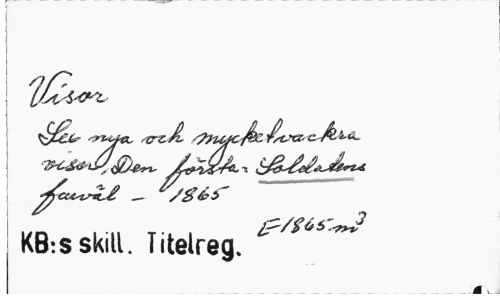 Visor
Sex nya och mycket vackra
visor, Den första: Soldatens
farväl — 1865
E 1865 m³
KB:s skill. Titelreg.